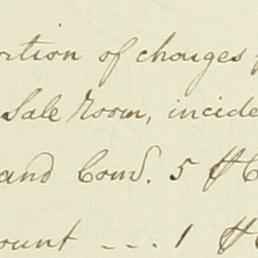 ortion of charges f
Sale Room, incide
and Comn. 5 ₱ C
ount --- 1 ₱ C